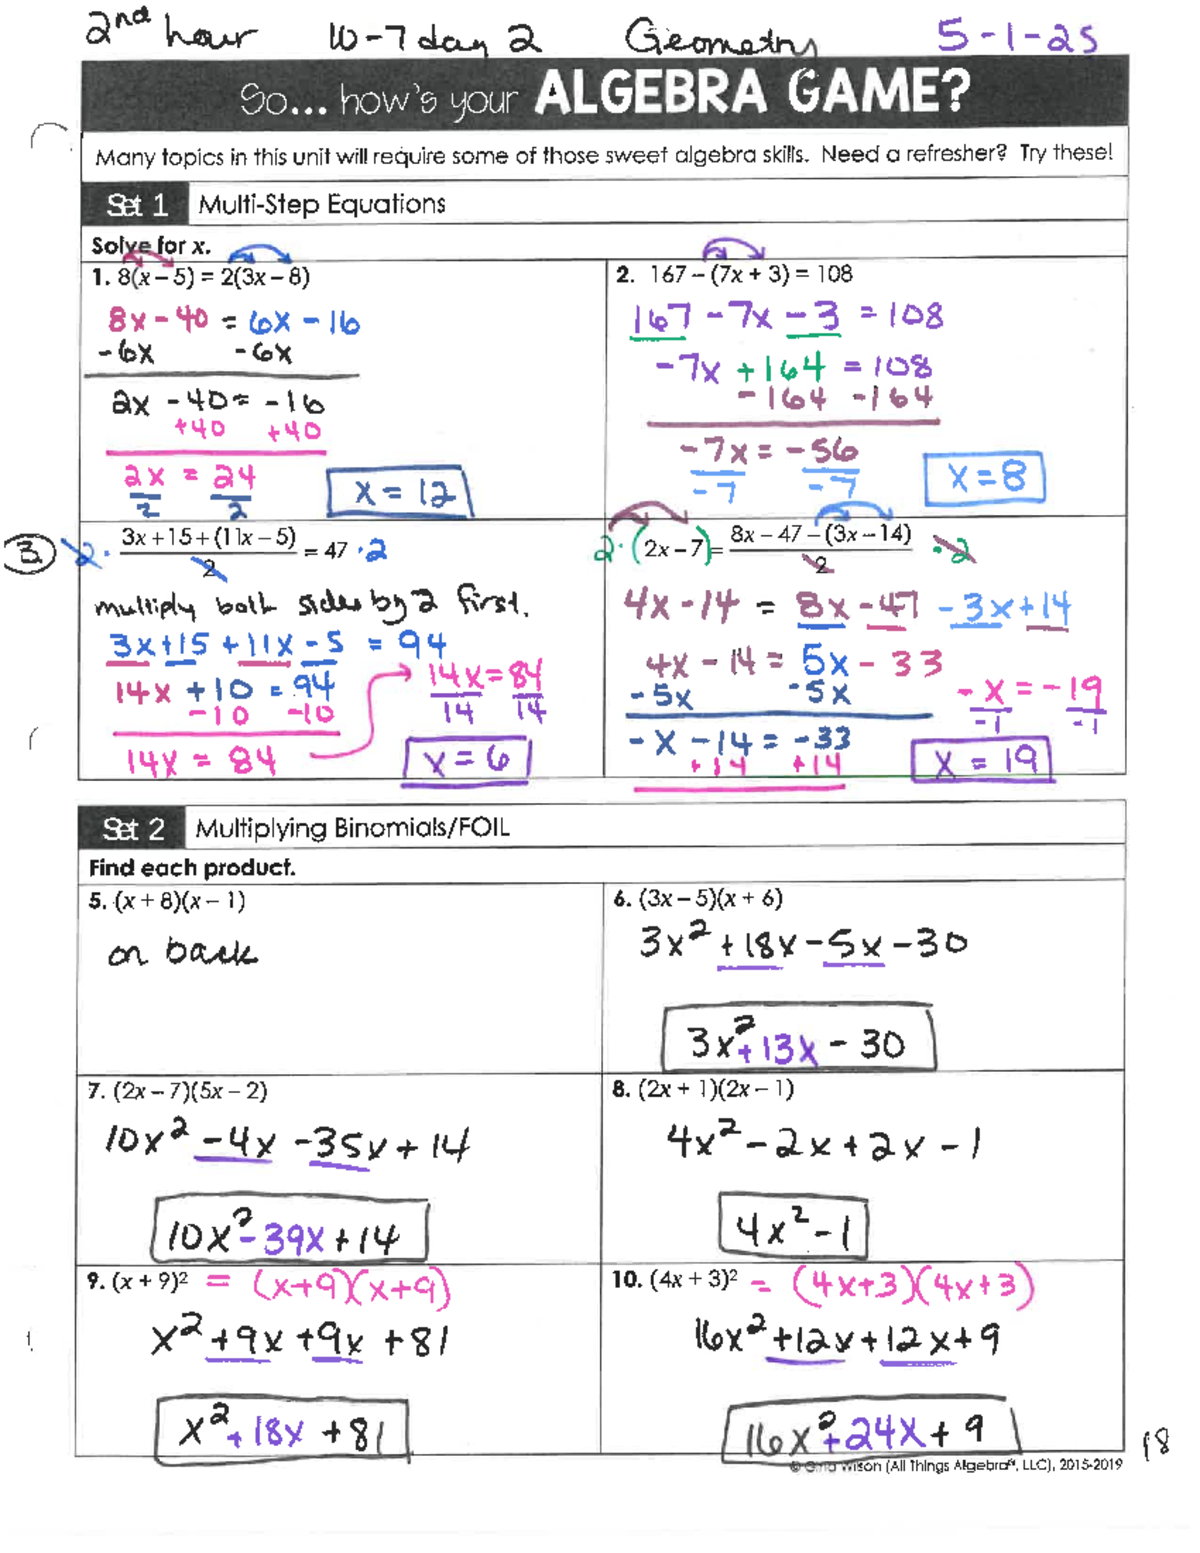 2nd hour 10-7 day 2 Geometry 5-1-25
So... how's your ALGEBRA GAME?
Many topics in this unit will require some of those sweet algebra skills. Need a refresher? Try these!
Set 1 Multi-Step Equations
Solve for x.
1. 8(x – 5) = 2(3x – 8)
8x - 40 = 6x - 16
-6x -6x
2x - 40 = -16
+40 +40
2x = 24
2 2
x = 12
2. 167 – (7x + 3) = 108
167 - 7x - 3 = 108
-7x + 164 = 108
-164 -164
-7x = -56
-7 -7
x = 8
3. 2· 3x + 15 + (11x – 5) = 47 ·2
2
multiply both sides by 2 first.
3x+15 + 11x - 5 = 94
14x + 10 = 94
-10 -10
14x = 84
14x = 84
14 14
x = 6
2·(2x – 7) = 8x – 47 – (3x – 14) ·2
2
4x - 14 = 8x - 47 - 3x + 14
4x - 14 = 5x - 33
-5x -5x
-x - 14 = -33
+14 +14
-x = -19
-1 -1
x = 19
Set 2 Multiplying Binomials/FOIL
Find each product.
5. (x + 8)(x – 1)
on back
6. (3x – 5)(x + 6)
3x² + 18x - 5x - 30
3x² + 13x - 30
7. (2x – 7)(5x – 2)
10x² - 4x - 35x + 14
10x² - 39x + 14
8. (2x + 1)(2x – 1)
4x² - 2x + 2x - 1
4x² - 1
9. (x + 9)² = (x+9)(x+9)
x² + 9x + 9x + 81
x² + 18x + 81
10. (4x + 3)² = (4x+3)(4x+3)
16x² + 12x + 12x + 9
16x² + 24x + 9
© Gina Wilson (All Things Algebra®, LLC), 2015-2019